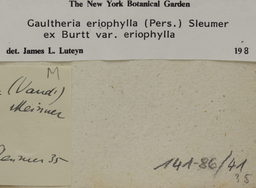 The New York Botanical Garden
Gaultheria eriophylla (Pers.) Sleumer
ex Burtt var. eriophylla
det. James L. Luteyn 198
M
(Vand.)
Meisner
Meisner 35
141-86/41
35